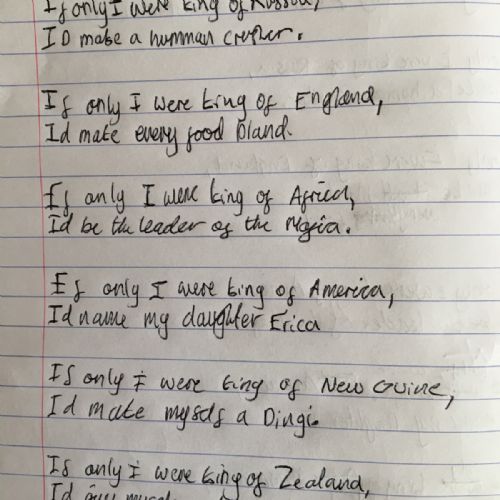 If only I were king of Russia,
ID make a humman crusher.
If only I were king of England,
Id make every food bland.
If only I were king of Africa,
Id be the leader of the
If only I were king of America,
Id name my daughter Erica
If only i were king of New Guine,
Id make myself a Dingi.
If only i were king of Zealand,
Id